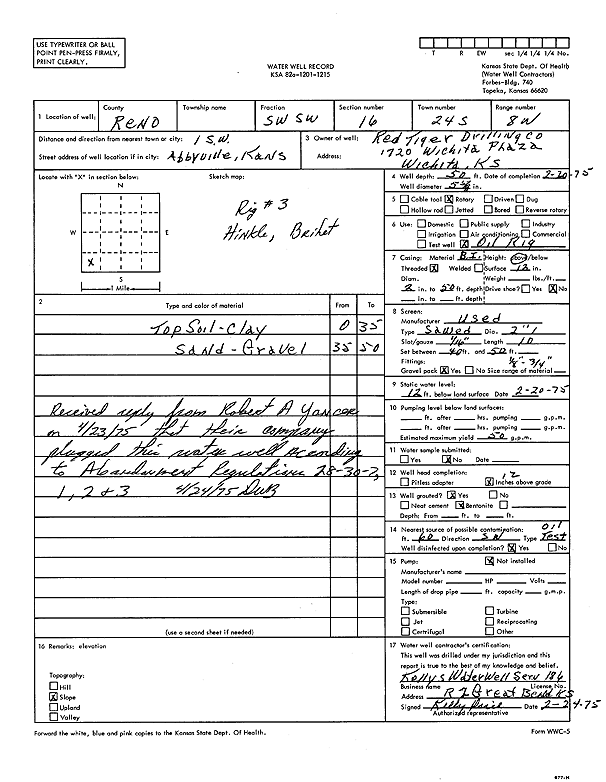 USE TYPEWRITER OR BALL
POINT PEN-PRESS FIRMLY,
PRINT CLEARLY.
WATER WELL RECORD
KSA 82a-1201-1215
T R EW sec 1/4 1/4 1/4 No.
Kansas State Dept. Of Health
(Water Well Contractors)
Forbes-Bldg. 740
Topeka, Kansas 66620
1 Location of well: County Township name Fraction Section number Town number Range number
Reno SW SW 16 24S 8W
Distance and direction from nearest town or city: 1 S.W.
Street address of well location if in city: Abbyville, Kans
3 Owner of well: Red Tiger Drilling Co
Address: 1720 Wichita Plaza
Wichita, KS
Locate with "X" in section below:
N
W E
X
S
1 Mile
Sketch map:
Rig #3
Hinkle, Briket
4 Well depth: 50 ft. Date of completion 2-20-75
Well diameter 5 in.
5 Cable tool X Rotary Driven Dug
Hollow rod Jetted Bored Reverse rotary
6 Use: Domestic Public supply Industry
Irrigation Air conditioning Commercial
Test well X Oil Rig
7 Casing: Material B.I. Height: above/below
Threaded X Welded Surface 12 in.
Diam. Weight lbs./ft.
2 in. to 50 ft. depth Drive shoe? Yes X No
in. to ft. depth
2 Type and color of material From To
Top Soil - Clay 0 35
Sand - Gravel 35 50
Received reply from Robert A Yancer
on 4/23/75 that their company
plugged this water well according
to Abandonment Regulations 28-30-7,
1, 2 & 3 4/24/75 DWB
(use a second sheet if needed)
8 Screen:
Manufacturer Used
Type Sawed Dia. 2"
Slot/gauze 1/16" Length 10
Set between 40 ft. and 50 ft.
Fittings: 1/8" - 3/4"
Gravel pack X Yes No Size range of material
9 Static water level:
12 ft. below land surface Date 2-20-75
10 Pumping level below land surface:
ft. after hrs. pumping g.p.m.
ft. after hrs. pumping g.p.m.
Estimated maximum yield 50 g.p.m.
11 Water sample submitted:
Yes X No Date
12 Well head completion: 12
Pitless adapter X Inches above grade
13 Well grouted? X Yes No
Neat cement X Bentonite
Depth: From ft. to ft.
14 Nearest source of possible contamination: oil
ft. 60 Direction SN Type Test
Well disinfected upon completion? X Yes No
15 Pump: X Not installed
Manufacturer's name
Model number HP Volts
Length of drop pipe ft. capacity g.m.p.
Type:
Submersible Turbine
Jet Reciprocating
Centrifugal Other
16 Remarks: elevation
Topography:
Hill
X Slope
Upland
Valley
17 Water well contractor's certification:
This well was drilled under my jurisdiction and this
report is true to the best of my knowledge and belief.
Kellys Water Well Serv 186
Business name License No.
Address R 2 Great Bend KS
Signed Kelly Price Date 2-24-75
Authorized representative
Forward the white, blue and pink copies to the Kansas State Dept. Of Health.
Form WWC-5